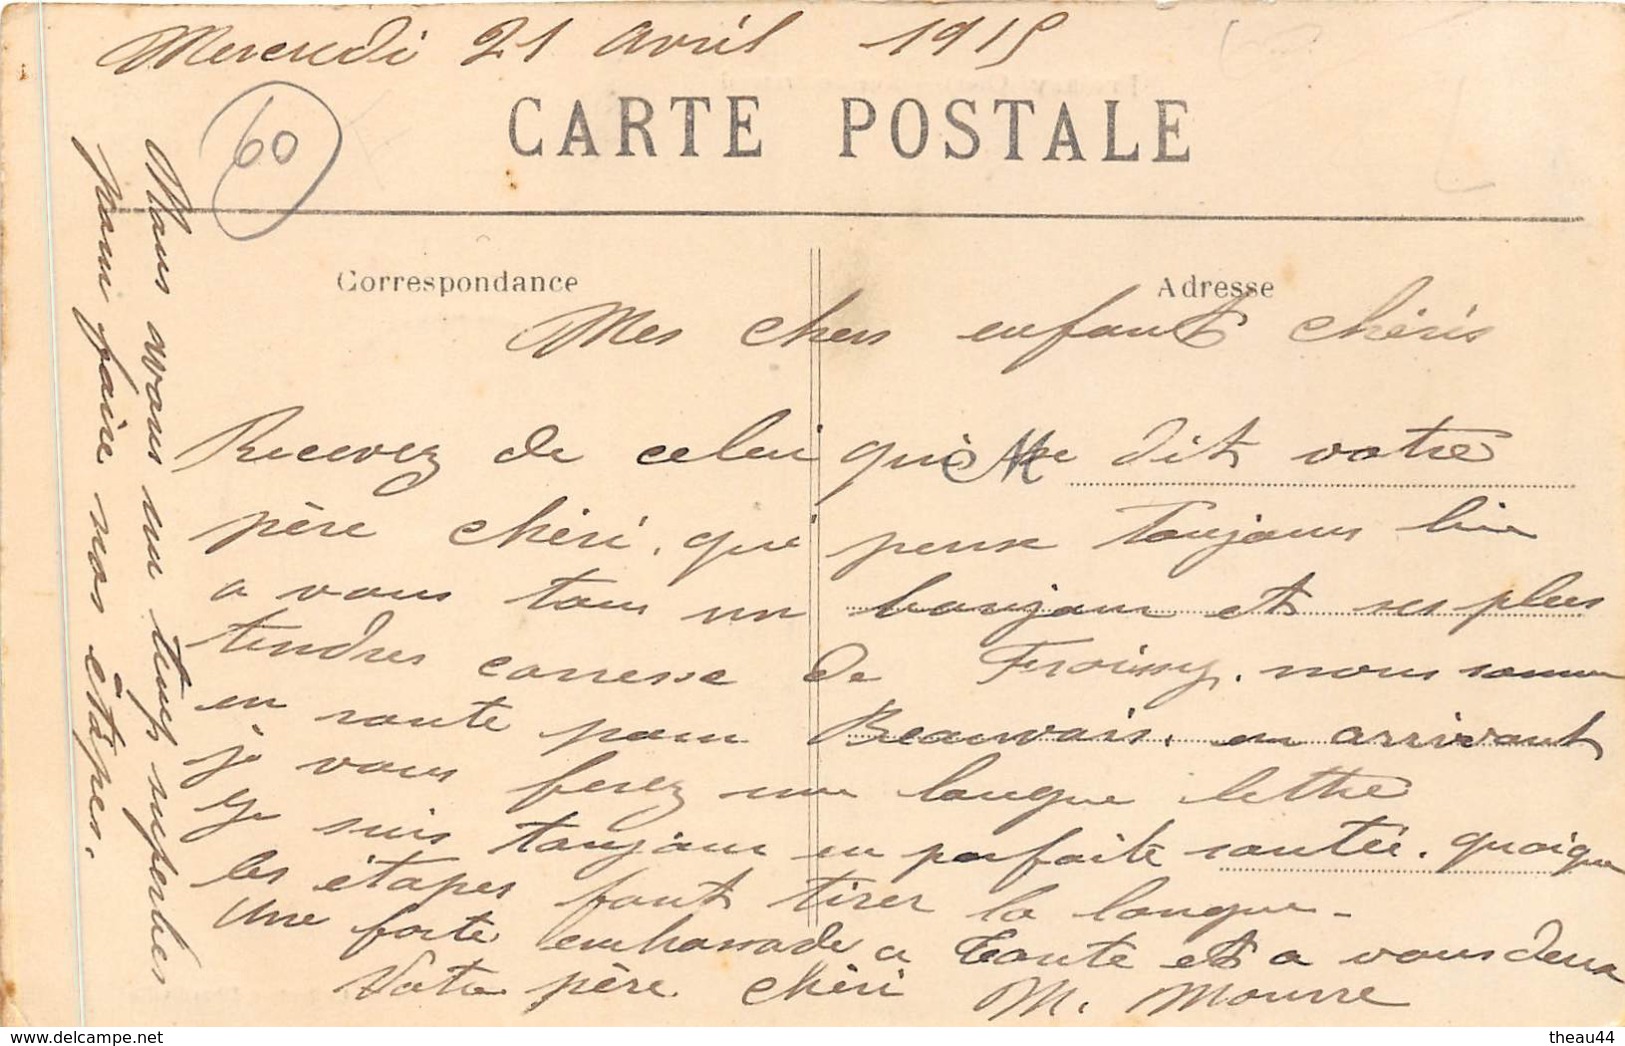 Mercredi 21 Avril 1915
60
CARTE POSTALE
Correspondance
Adresse
Mes chers enfants chéris
Recevez de celui qui se dit votre
père chéri, qui pense toujours bien
a vous tous un bonjour et ses plus
tendres caresse de Froissy. nous somme
en route pour Beauvais. en arrivant
je vous ferez une longue lettre
Je suis toujour en parfaite santée. quoique
les étapes font tirer la langue.
Une forte embrassade a Tante et a vous deux
Votre père chéri M. Mourre
Nous avons un temps superbes
pour faire nos étapes.
theau44